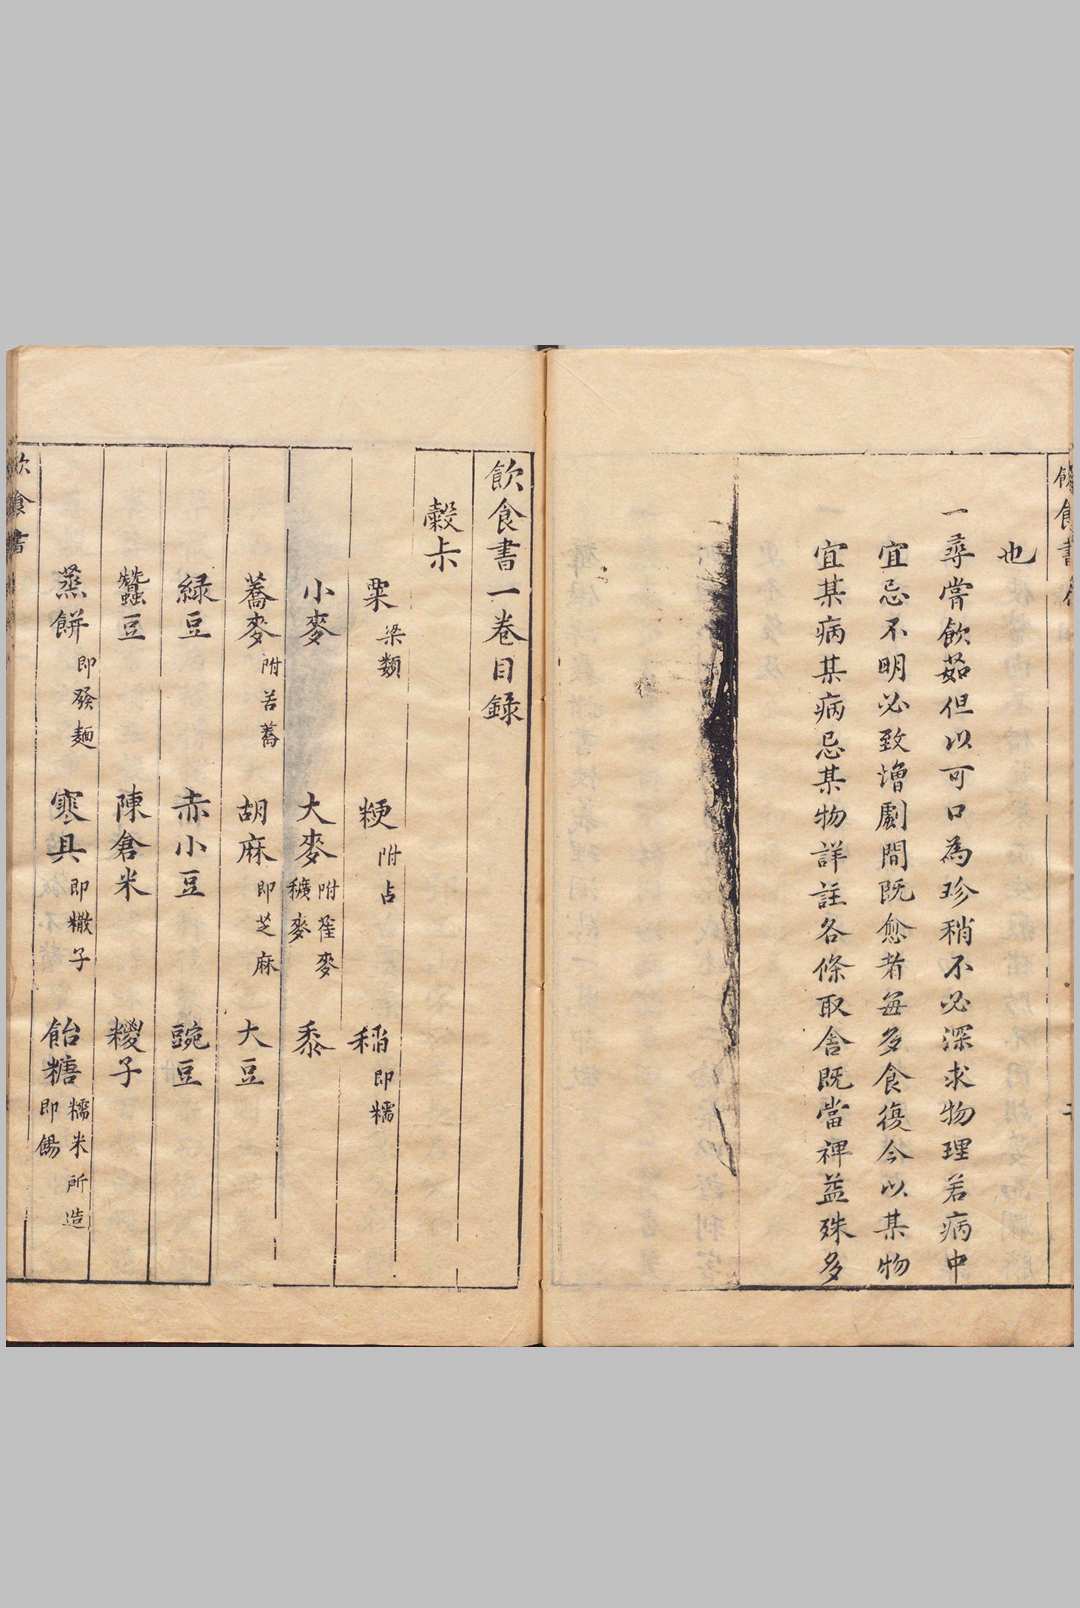 也
一尋嘗飲茹但以可口為珍稍不必深求物理若病中
宜忌不明必致增劇間既愈者每多食復今以某物
宜某病某病忌某物詳註各條取舍既當裨益殊多
飲食書一卷目錄
穀
粟 梁類 粳 附占 稻 即糯
小麥 大麥 附雀麥 穬麥 黍
蕎麥 附苦蕎 胡麻 即芝麻 大豆
緑豆 赤小豆 豌豆
蠶豆 陳倉米 糉子
蒸餅 即發麺 寒具 即糤子 飴糖 糯米所造 即餳
飲食書